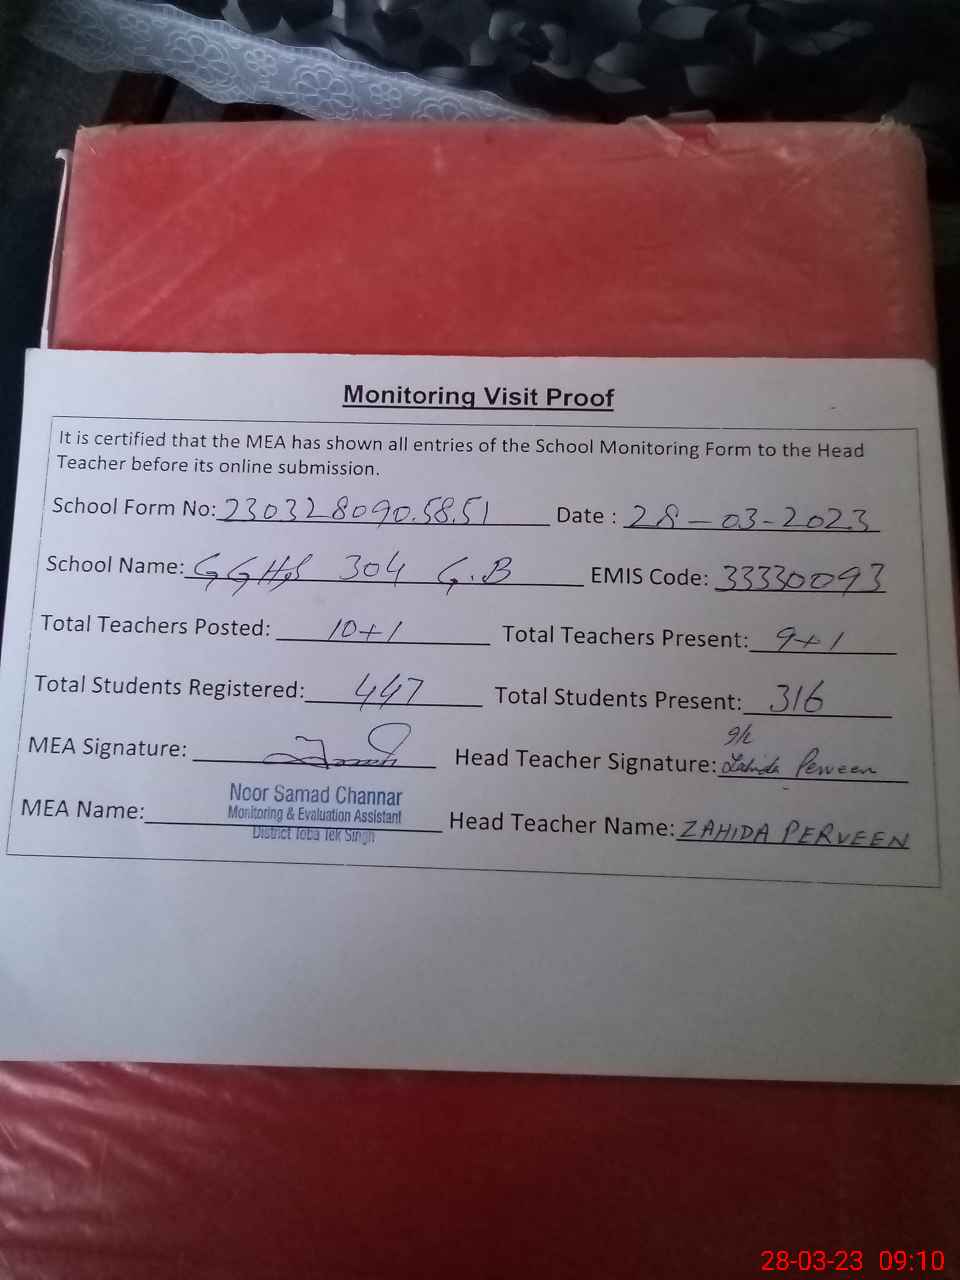 Monitoring Visit Proof
It is certified that the MEA has shown all entries of the School Monitoring Form to the Head
Teacher before its online submission.
School Form No: 230328090.58.51 Date : 28-03-2023
School Name: GGHS 304 G.B EMIS Code: 33330093
Total Teachers Posted: 10+1 Total Teachers Present: 9+1
Total Students Registered: 447 Total Students Present: 316
MEA Signature: Head Teacher Signature: Zahida Perveen
MEA Name: Noor Samad Channar
Monitoring & Evaluation Assistant
District Toba Tek Singh
Head Teacher Name: ZAHIDA PERVEEN
28-03-23 09:10